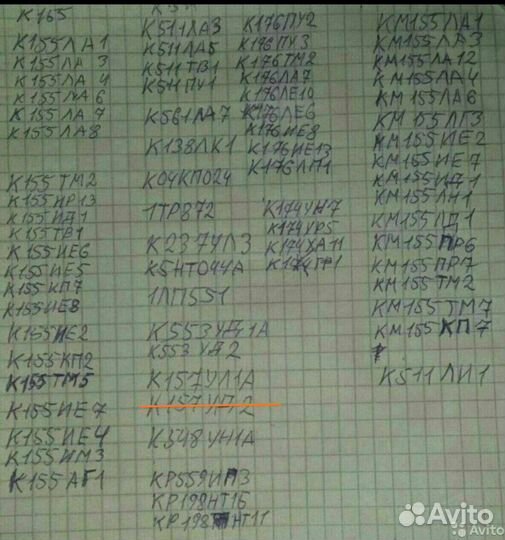 К155
К155ЛА1
К155ЛА3
К155ЛА4
К155ЛА6
К155ЛА7
К155ЛА8
К155ТМ2
К155ПР13
К155ИД1
К155ТВ1
К155ИЕ6
К155ИЕ5
К155КП7
К155ИЕ8
К155ИЕ2
К155КП2
К155ТМ5
К155ИЕ7
К155ИЕ4
К155ИМ3
К155АГ1
К511ЛА3
К511ЛА5
К511ТВ1
К511ПУ1
К561ЛА7
К138ЛК1
К04КП024
1ТР872
К237УЛ3
К5НТ044А
1ЛП551
К553УД1А
К553УД2
К157УЛ1А
К157УП2
К548УН1А
КР559ИП3
КР198НТ1Б
КР198НТ11
К176ПУ2
К176ПУ3
К176ТМ2
К176ЛА7
К176ЛЕ10
К176ЛЕ6
К176ИЕ8
К176ИЕ13
К176ЛП1
К174УН7
К174УР5
К174ХА11
К174ГР1
КМ155ЛА1
КМ155ЛА3
КМ155ЛА12
КМ155ЛА4
КМ155ЛА6
КМ155ЛГ3
КМ155ИЕ2
КМ155ИЕ7
КМ155ИД1
КМ155ЛН1
КМ155ЛД1
КМ155ПР6
КМ155ПР7
КМ155ТМ2
КМ155ТМ7
КМ155КП7
К511ЛИ1
Avito
Avito